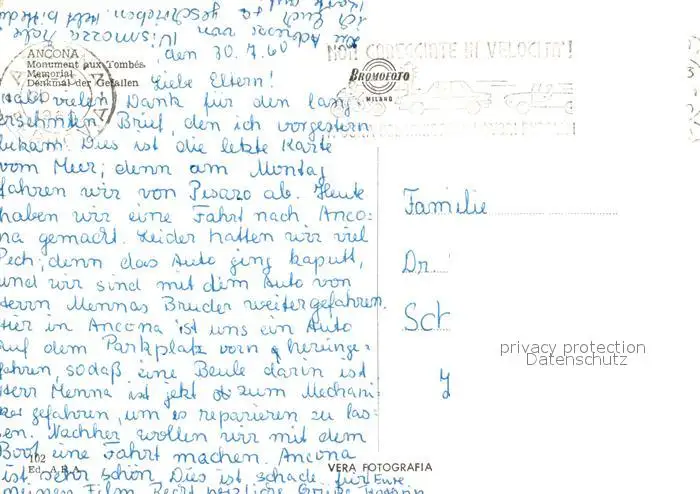 ich Euch so geschrieben.
Die Adresse von
den 30.7.60
ANCONA
Monument aux Tombés
Memorial
Denkmal der Gefallen
NON GAREGGIATE IN VELOCITA'!
BROMOFOTO
MILANO
Liebe Eltern!
Habt vielen Dank für den lang
ersehnten Brief, den ich vorgestern
bekam! Dies ist die letzte Karte
vom Meer; denn am Montag
fahren wir von Pesaro ab. Heute
haben wir eine Fahrt nach Anco-
na gemacht. Leider hatten wir viel
Pech; denn das Auto ging kaputt,
und wir sind mit dem Auto von
Herrn Mennas Bruder weitergefahren.
Hier in Ancona ist uns ein Auto
auf dem Parkplatz vorn hereinge-
fahren, sodaß eine Beule darin ist
Herr Menna ist jetzt zum Mechani-
ker gefahren, um es reparieren zu las-
sen. Nachher wollen wir mit dem
Boot eine Fahrt machen. Ancona
ist sehr schön. Dies ist schade für Eure
meinen Film. Recht herzliche Grüße
Familie
Dr.
Sch
privacy protection
Datenschutz
102
Ed. A.R.A.
VERA FOTOGRAFIA